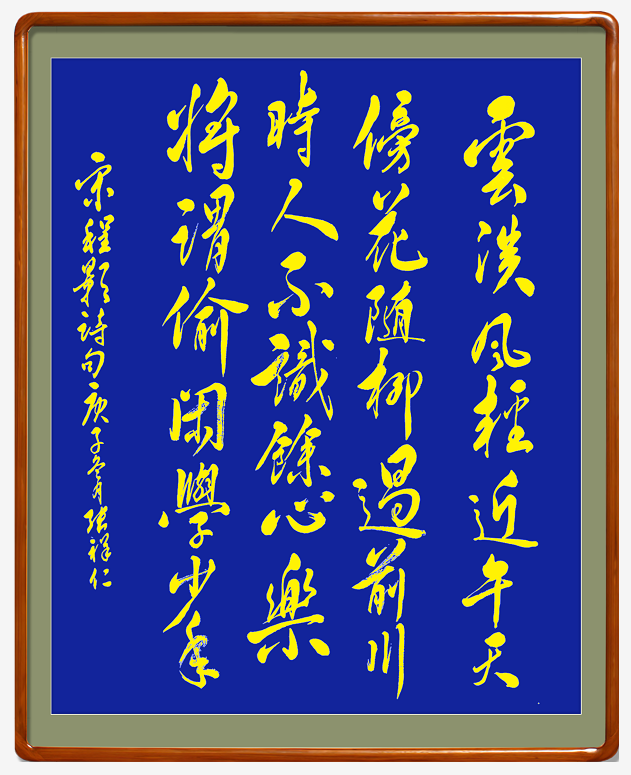 雲淡風輕近午天
傍花随柳過前川
時人不識餘心樂
将謂偷閑學少年
宋程顥詩句庚子冬月張祥仁